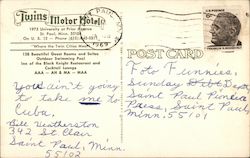 Twins
Motor Hotel
1975 University at Prior Avenue
St. Paul, Minn. 55104
On U. S. 12 — Phone
"Where the Twin Cities Meet"
138 Beautiful Guest Rooms and Suites
Outdoor Swimming Pool
Inn of the Black Knight Restaurant and
Cocktail Lounge
AAA — AH & MA — MAA
You ain't going
to take me to
Cuba,
Bill Weatherston
342 St Clair
Saint Paul, Minn.
55102
1969
U.S. POSTAGE
POST CARD
Foto Funnies,
Sunday Pict Dept.
Saint Paul Pioneer
Press, Saint Paul,
Minn. 55101